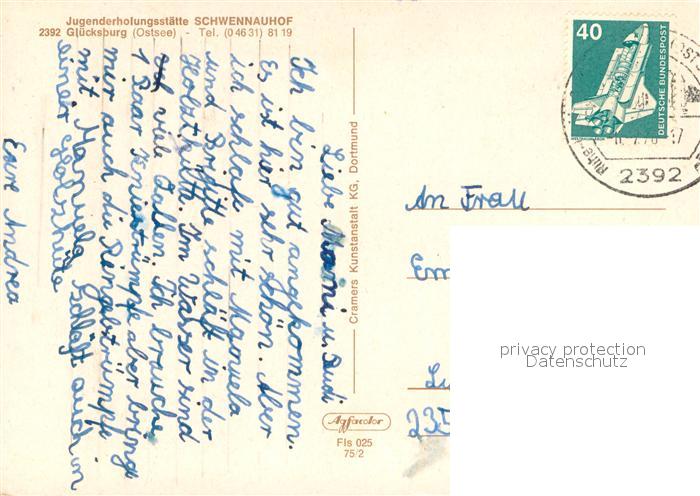 Jugenderholungsstätte SCHWENNAUHOF
2392 Glücksburg (Ostsee) - Tel. (0 46 31) 81 19
Liebe Mami u. Rudi
Ich bin gut angekommen.
Es ist hier sehr schön. Aber
ich schlafe mit Manuela
und Brigitte schläft in der
Holzhütte. Im Wasser sind
viele Quallen. Ich brauche
1 Paar Kniestrümpfe aber bringt
mir auch die Ringelstrümpfe
mit Manuela schläft auch in
einer Holzhütte
Eure Andrea
Cramers Kunstanstalt KG, Dortmund
Agfacolor
Fls 025
75/2
40
DEUTSCHE BUNDESPOST
2392
An Frau
Em
Lü
235
privacy protection
Datenschutz